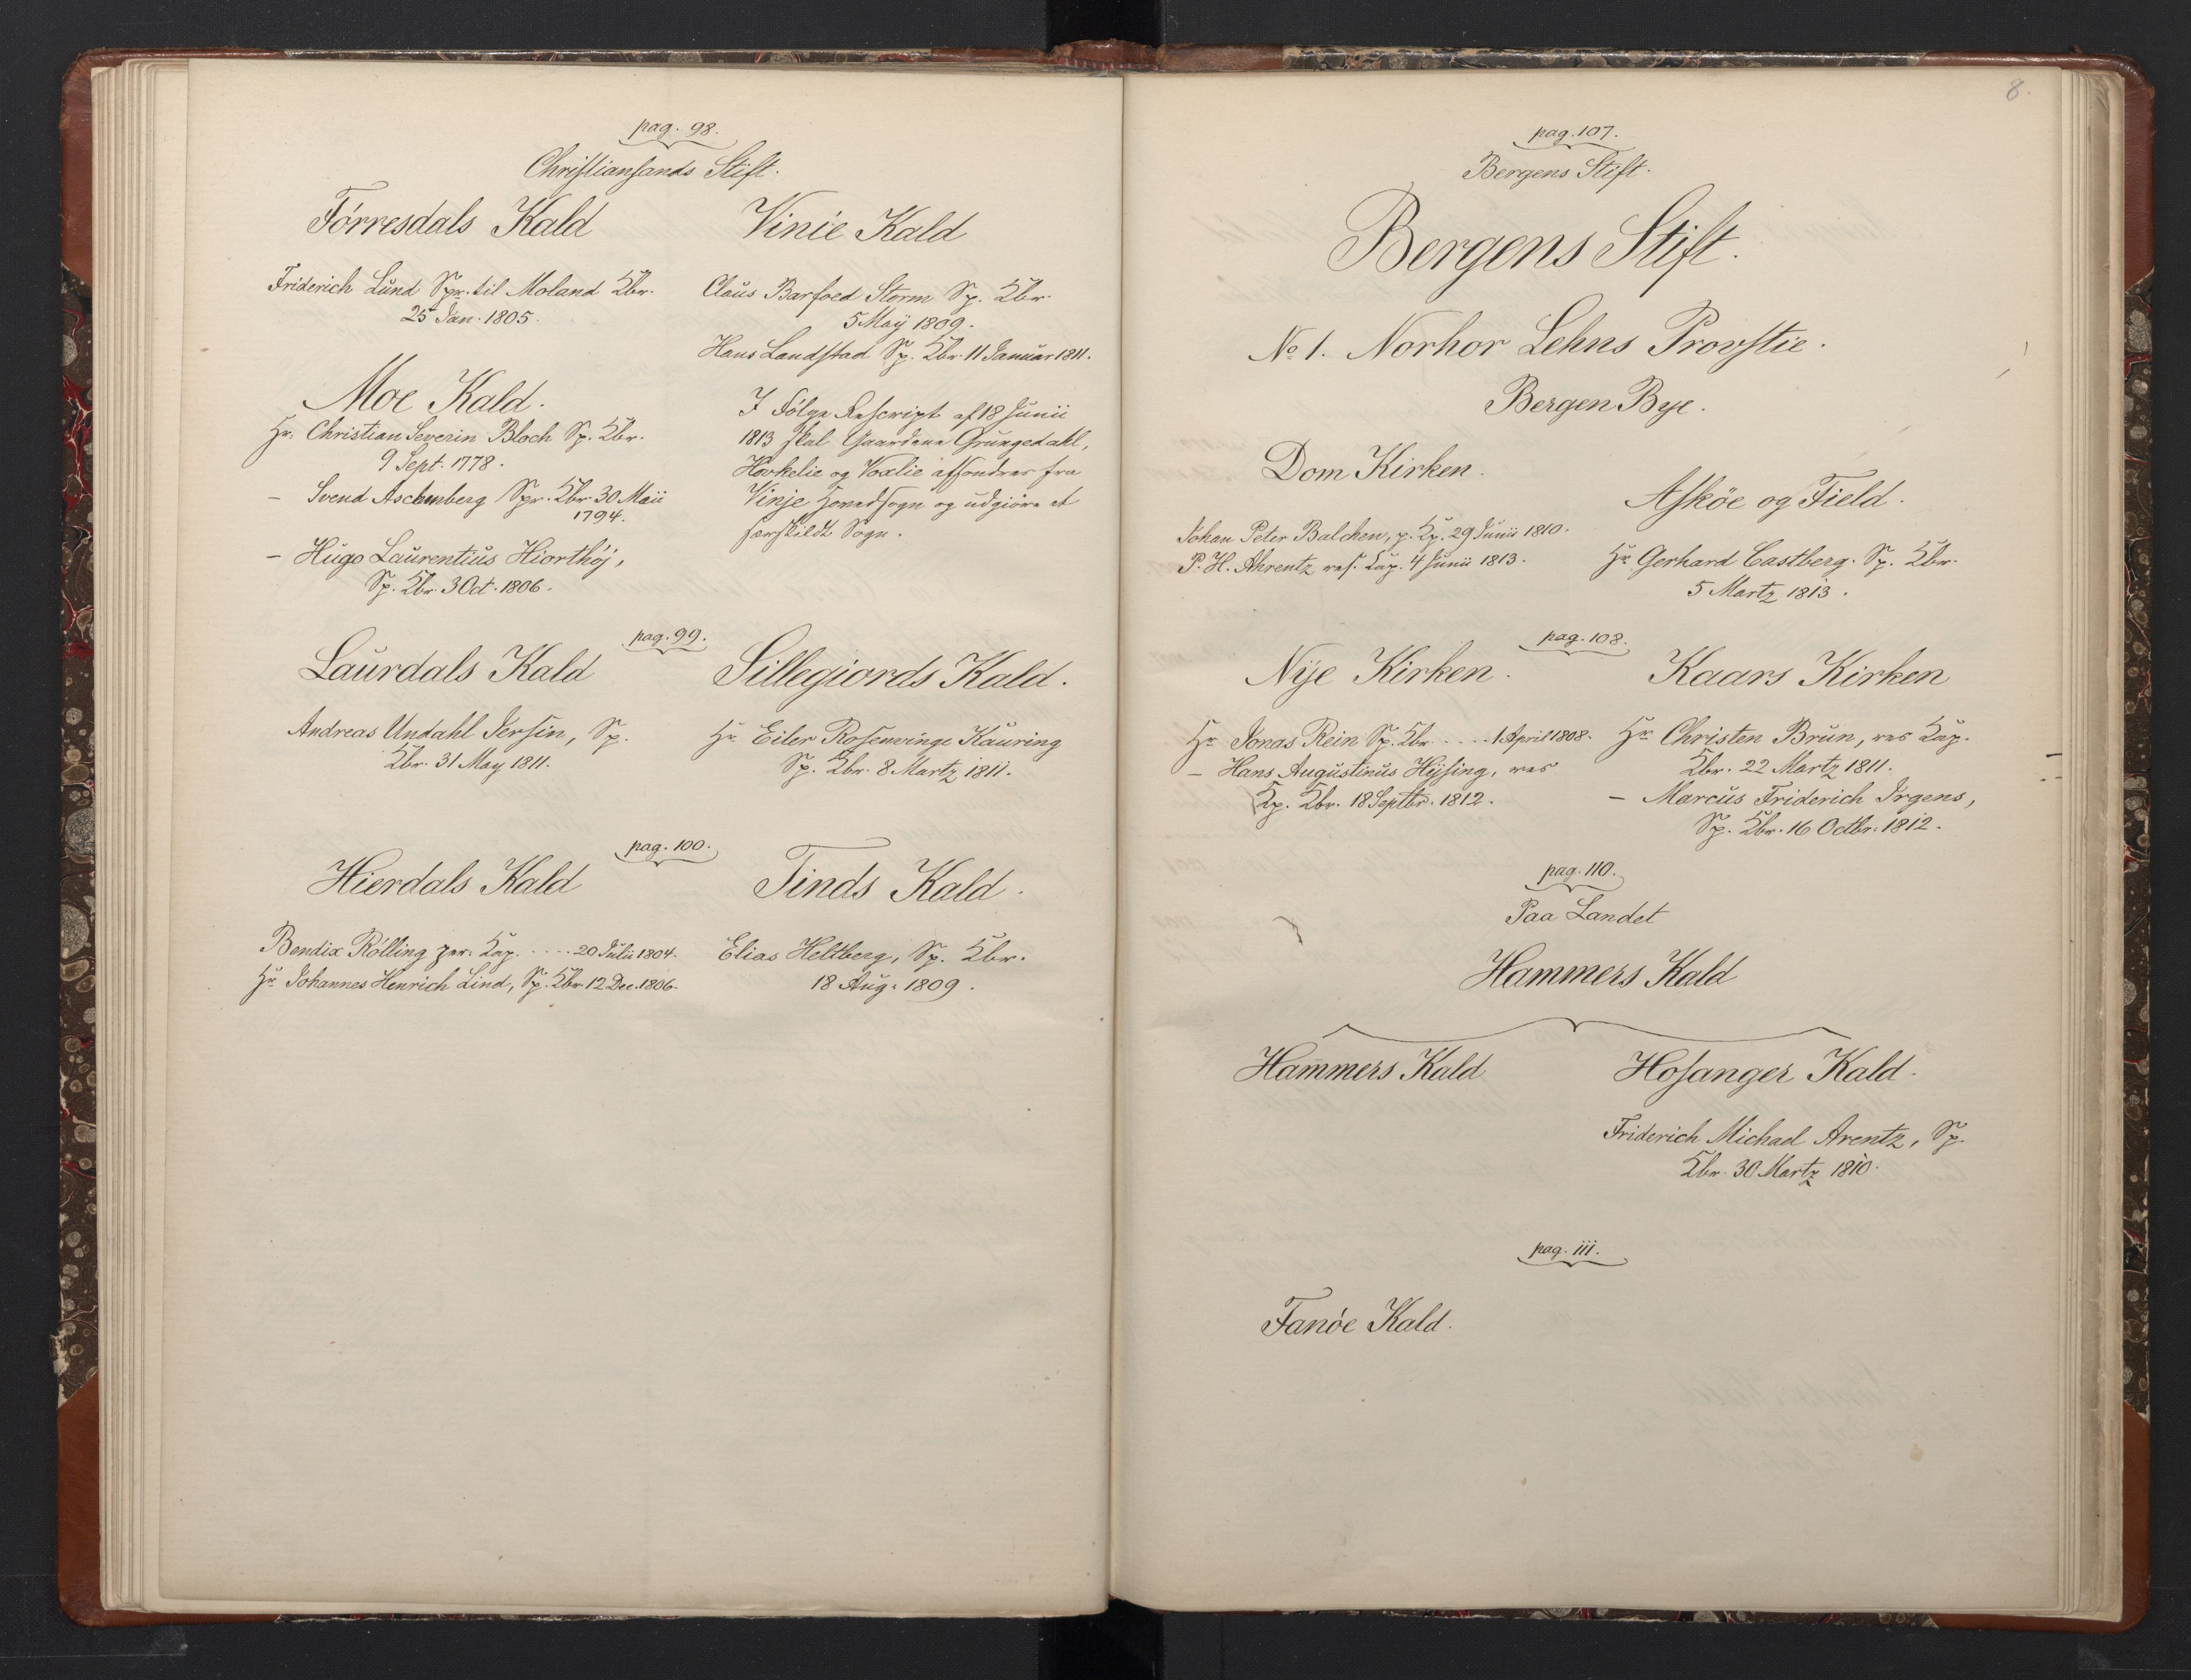 pag. 98.
Christiansands Stift.
Törresdals Kald
Friderich Lund Spr. til Moland Kbr.
25 Jan. 1805.
Moe Kald.
Hr. Christian Severin Bloch Sp. Kbr.
9 Sept. 1778.
– Svend Aschenberg Spr. Kbr 30 Maii
1794.
– Hugo Laurentius Hiorthöj,
Sp. Kbr. 3 Oct. 1806.
Vinie Kald
Claus Barfoed Storm Sp. Kbr.
5 Maÿ 1809.
Hans Landstad Sp. Kbr. 11 Januar 1811.
I Fölge Rescript af 18 Junii
1813 skal Gaardene Grungedahl,
Haukelie og Voxlie affondres fra
Vinje Hovedsogn og udgiöre et
særskildt Sogn.
pag. 99.
Laurdals Kald
Andreas Undahl Jersin, Sp.
Kbr. 31 May 1811.
Sillegiords Kald.
Hr. Eiler Rosenvinge Kauring
Sp. Kbr. 8 Martz 1811.
pag. 100.
Hierdals Kald
Bendix Rölling per. Cap. .... 20 Julii 1804.
Hr. Johannes Henrich Lind, Sp. Kbr. 12 Dec. 1806.
Tinds Kald.
Elias Heltberg, Sp. Kbr.
18 Aug. 1809.
8.
pag. 107.
Bergens Stift.
Bergens Stift.
No 1. Norhor Lehns Provstie.
Bergen Bye.
Dom Kirken.
Johan Peter Balchen, p. Kp. 29 Junii 1810.
P. H. Ahrentz res. Cap. 4 Junii 1813.
Asköe og Field.
Hr Gerhard Castberg. Sp. Kbr.
5 Martz 1813.
pag. 108.
Nÿe Kirken.
Hr Jonas Rein Sp. Kbr. .... 1 April 1808.
– Hans Augustinus Hÿsing, res
Kp. Kbr. 18 Septbr. 1812.
Kaars Kirken
Hr Christen Brun, res Cap.
Kbr. 22 Martz 1811.
– Marcus Friderich Irgens,
Sp. Kbr. 16 Octbr. 1812.
pag. 110.
Paa Landet
Hammers Kald
Hammers Kald
Hosanger Kald.
Friderich Michael Arentz, Sp.
Kbr. 30 Martz 1810.
pag. 111.
Fanöe Kald.